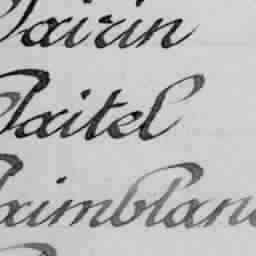 Pairin
Paitel
Paimblan